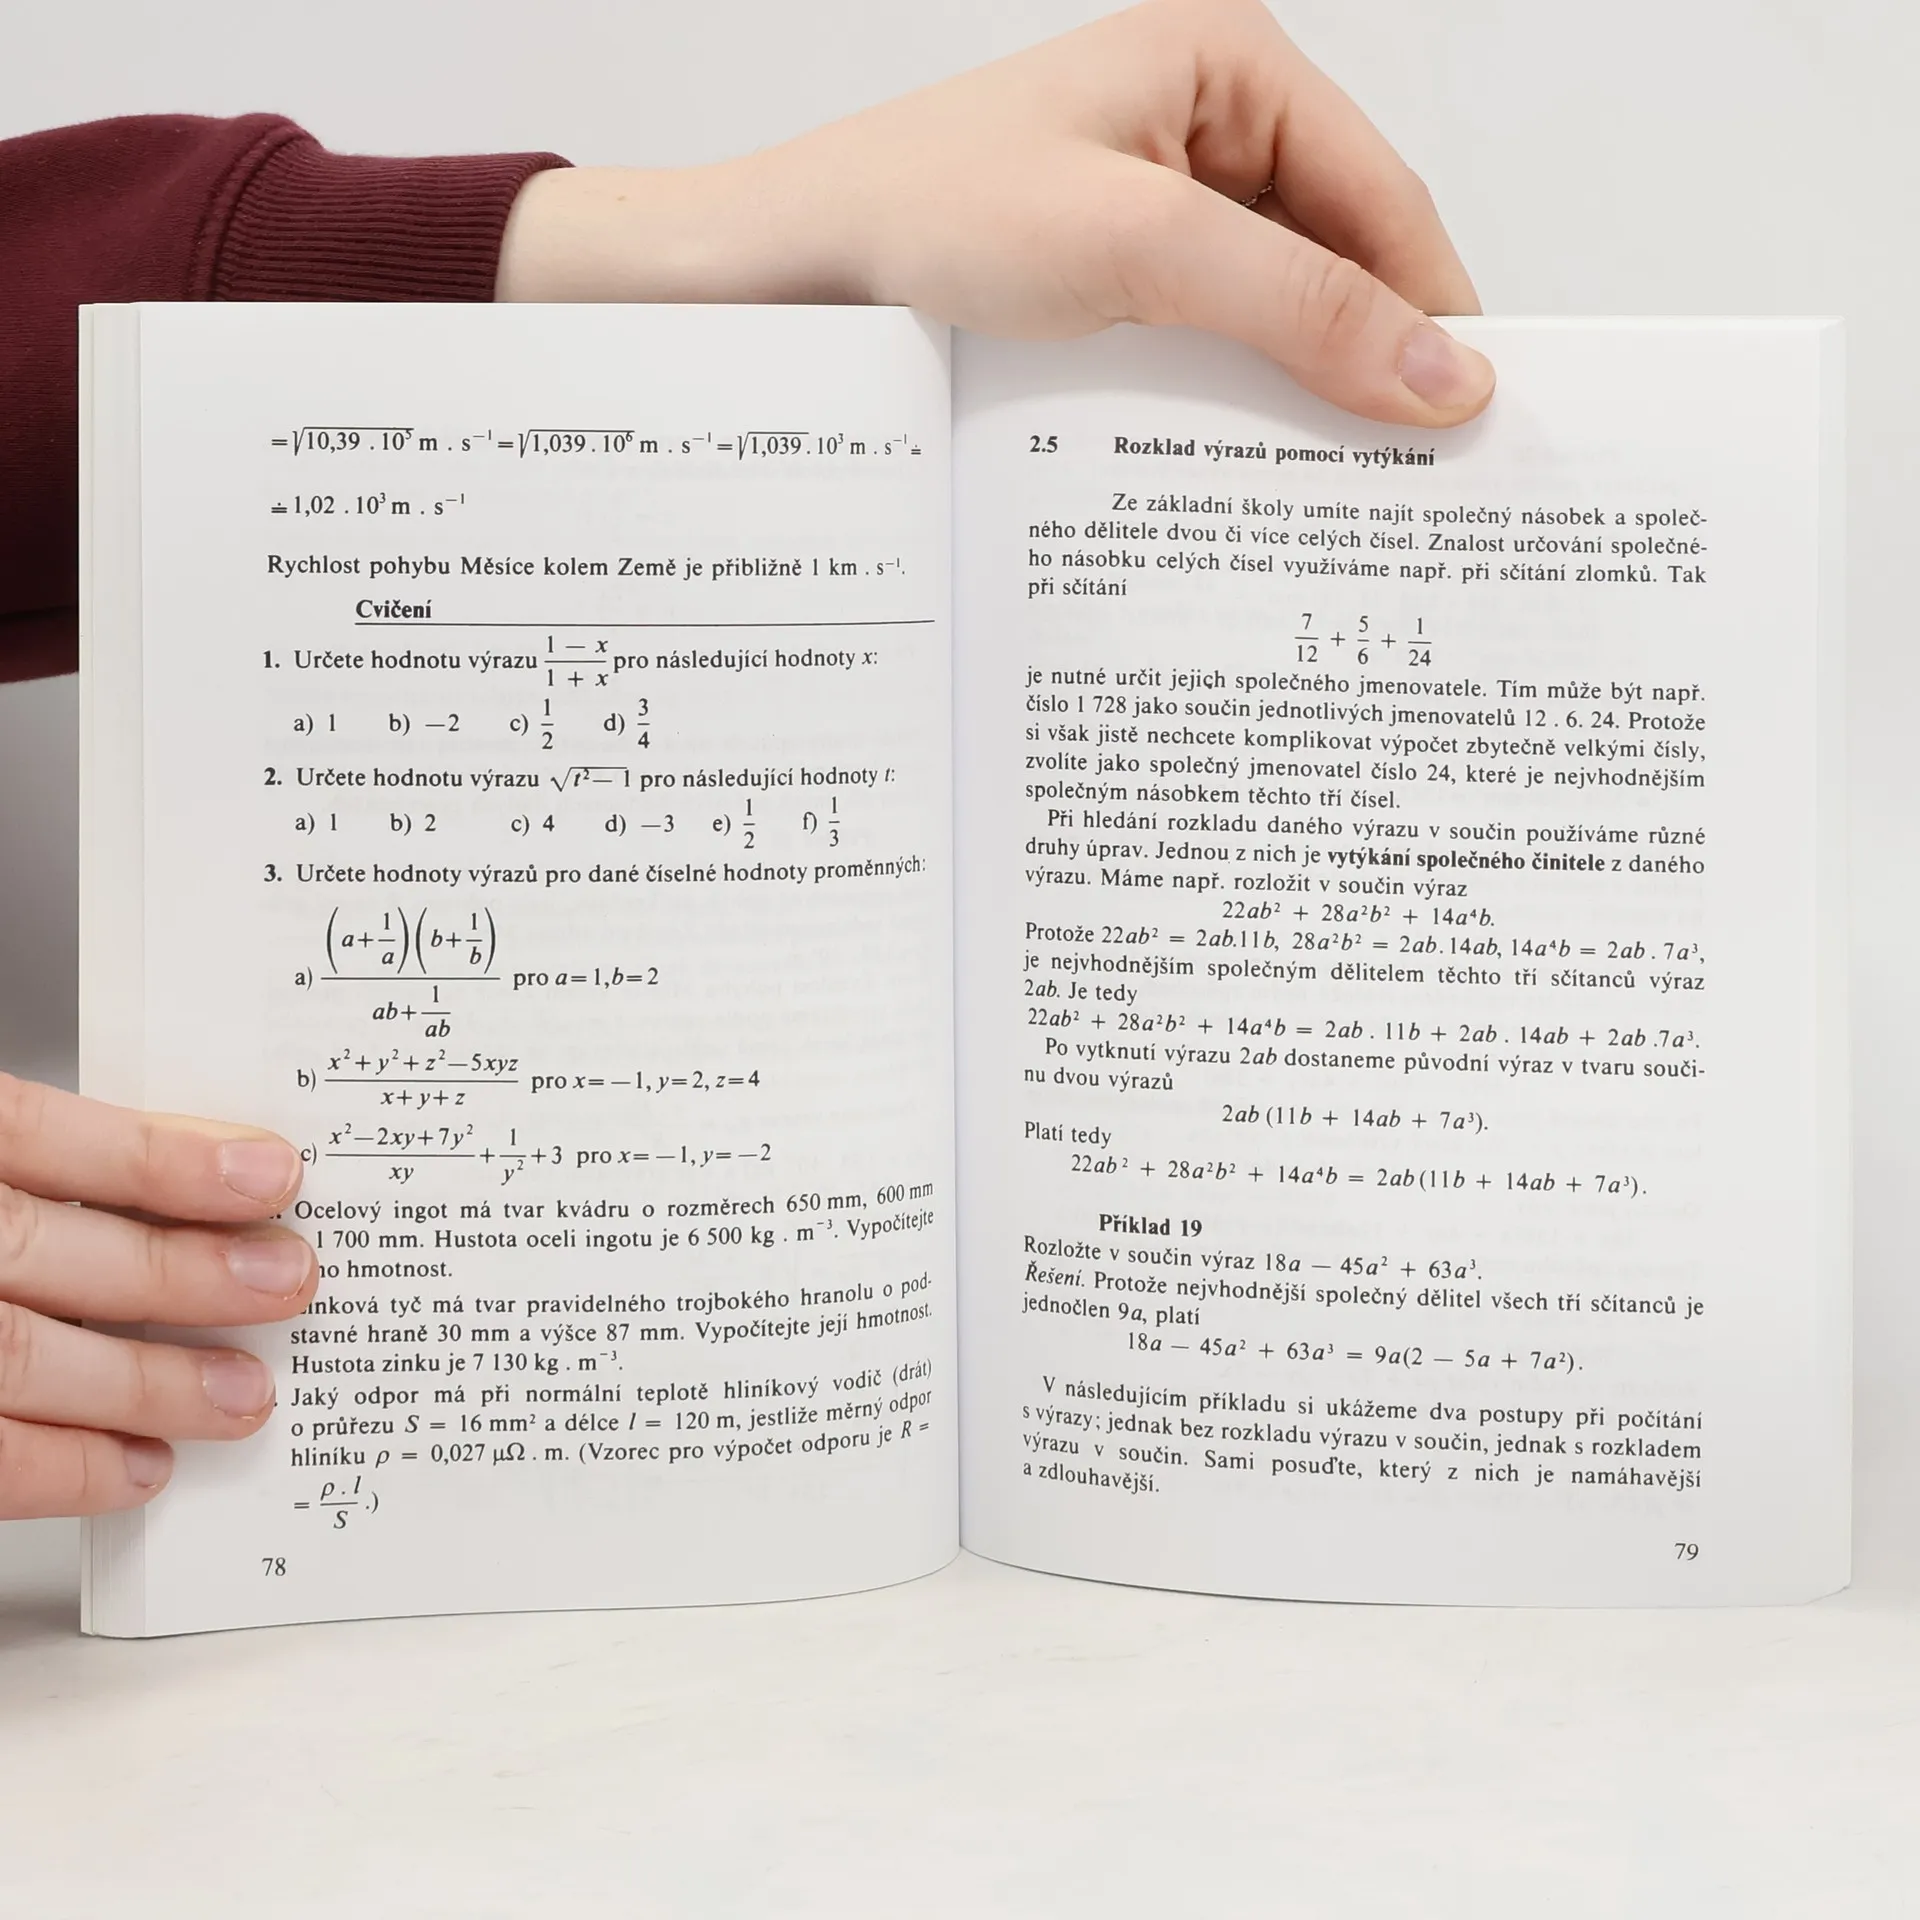 =√10,39 . 10⁵ m . s⁻¹=√1,039 . 10⁶ m . s⁻¹=√1,039 . 10³ m . s⁻¹≐
≐ 1,02 . 10³ m . s⁻¹
Rychlost pohybu Měsíce kolem Země je přibližně 1 km . s⁻¹.
Cvičení
1. Určete hodnotu výrazu (1 — x)/(1 + x) pro následující hodnoty x:
a) 1 b) —2 c) 1/2 d) 3/4
2. Určete hodnotu výrazu √(t²— 1) pro následující hodnoty t:
a) 1 b) 2 c) 4 d) —3 e) 1/2 f) 1/3
3. Určete hodnoty výrazů pro dané číselné hodnoty proměnných:
a) ((a+1/a)(b+1/b))/(ab+1/ab) pro a=1,b=2
b) (x²+y²+z²—5xyz)/(x+y+z) pro x= —1, y=2, z=4
c) (x²—2xy+7y²)/(xy) + 1/y² +3 pro x= —1, y= —2
Ocelový ingot má tvar kvádru o rozměrech 650 mm, 600 mm
1 700 mm. Hustota oceli ingotu je 6 500 kg . m⁻³. Vypočítejte
hmotnost.
stavné hraně 30 mm a výšce 87 mm. Vypočítejte její hmotnost.
tyč má tvar pravidelného trojbokého hranolu o pod-
Hustota zinku je 7 130 kg . m⁻³.
Jaký odpor má při normální teplotě hliníkový vodič (drát)
o průřezu S = 16 mm² a délce l = 120 m, jestliže měrný odpor
hliníku ρ = 0,027 µΩ . m. (Vzorec pro výpočet odporu je R =
= (ρ . l)/S .)
78
2.5 Rozklad výrazů pomocí vytýkání
Ze základní školy umíte najít společný násobek a společ-
ného dělitele dvou či více celých čísel. Znalost určování společné-
ho násobku celých čísel využíváme např. při sčítání zlomků. Tak
při sčítání
7/12 + 5/6 + 1/24
je nutné určit jejich společného jmenovatele. Tím může být např.
číslo 1 728 jako součin jednotlivých jmenovatelů 12 . 6. 24. Protože
si však jistě nechcete komplikovat výpočet zbytečně velkými čísly,
zvolíte jako společný jmenovatel číslo 24, které je nejvhodnějším
společným násobkem těchto tří čísel.
Při hledání rozkladu daného výrazu v součin používáme různé
druhy úprav. Jednou z nich je vytýkání společného činitele z daného
výrazu. Máme např. rozložit v součin výraz
22ab² + 28a²b² + 14a⁴b.
Protože 22ab² = 2ab.11b, 28a²b² = 2ab.14ab, 14a⁴b = 2ab . 7a³,
je nejvhodnějším společným dělitelem těchto tří sčítanců výraz
2ab. Je tedy
22ab² + 28a²b² + 14a⁴b = 2ab . 11b + 2ab . 14ab + 2ab .7a³.
Po vytknutí výrazu 2ab dostaneme původní výraz v tvaru souči-
nu dvou výrazů
2ab (11b + 14ab + 7a³).
Platí tedy
22ab² + 28a²b² + 14a⁴b = 2ab(11b + 14ab + 7a³).
Příklad 19
Rozložte v součin výraz 18a — 45a² + 63a³.
Řešení. Protože nejvhodnější společný dělitel všech tří sčítanců je
jednočlen 9a, platí
18a — 45a² + 63a³ = 9a(2 — 5a + 7a²).
V následujícím příkladu si ukážeme dva postupy při počítání
s výrazy; jednak bez rozkladu výrazu v součin, jednak s rozkladem
výrazu v součin. Sami posuďte, který z nich je namáhavější
a zdlouhavější.
79